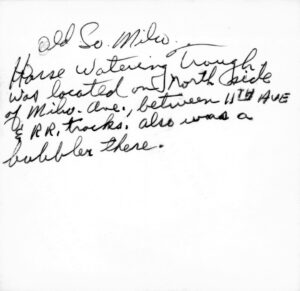 Old So. Milw.
Horse Watering Trough
was located on North side
of Milw. Ave., between 11TH AVE
& RR. tracks. also was a
bubbler there.